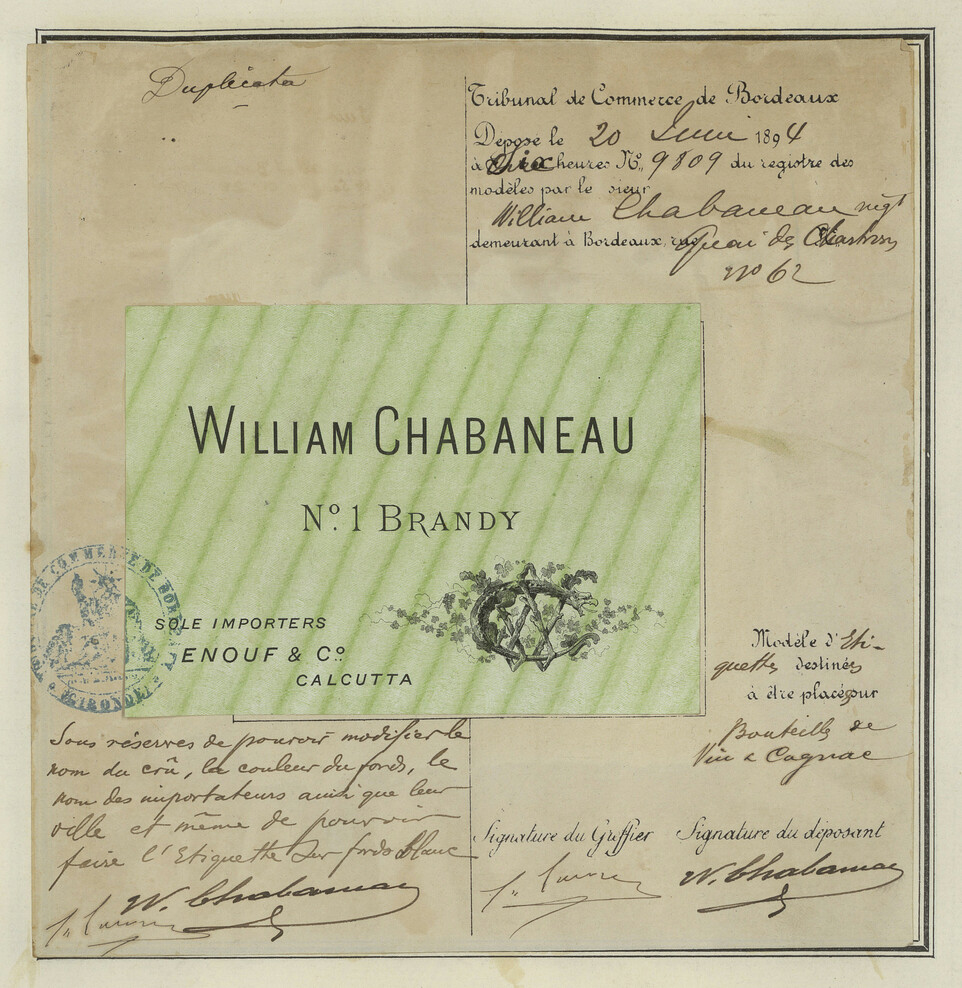 Duplicata
Tribunal de Commerce de Bordeaux
Déposé le 20 Juin 1894
à dix heures No. 9809 du registre des
modèles par le sieur
William Chabaneau négt
demeurant à Bordeaux, rue Quai des Chartrons
no 62
WILLIAM CHABANEAU
No. 1 BRANDY
SOLE IMPORTERS
ENOUF & Co.
CALCUTTA
DE COMMERCE DE BORD
(GIRONDE)
Modèle d'Eti-
quettes destinées
à être placées sur
Bouteilles de
Vin & Cognac
Sous réserves de pouvoir modifier le
nom du crû, la couleur du fonds, le
nom des importateurs ainsi que leur
ville et même de pouvoir
faire l'Etiquette sur fonds blanc
Signature du Greffier
Signature du déposant
W. Chabaneau
W. Chabaneau